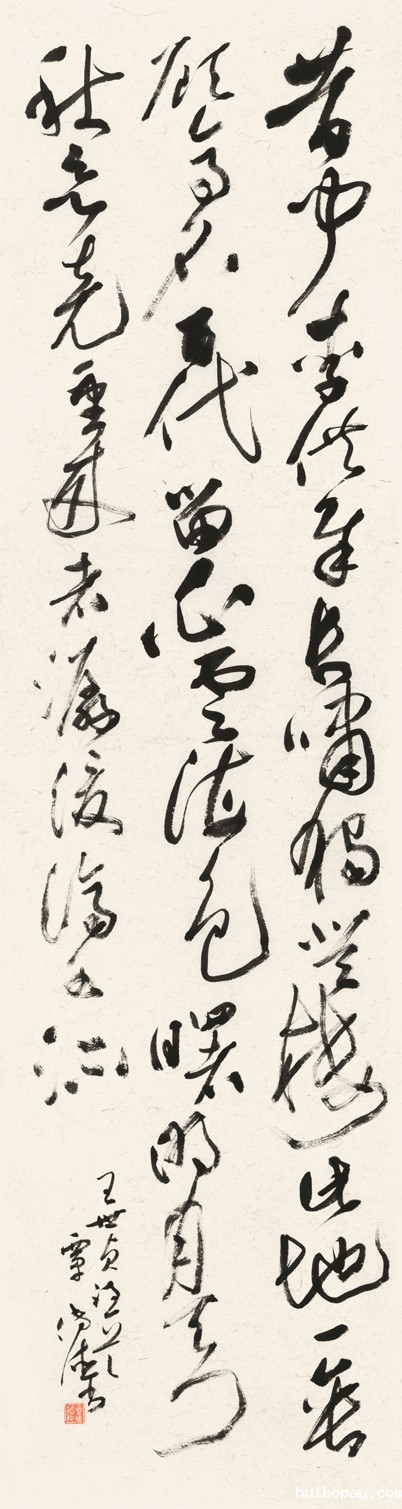 昔聞李供奉長嘯獨登樓此地一垂
顧高名百代留白雲海色曙明月天門
秋欲覓重來者潺湲濟水流
王世貞
覃
huibopay.com